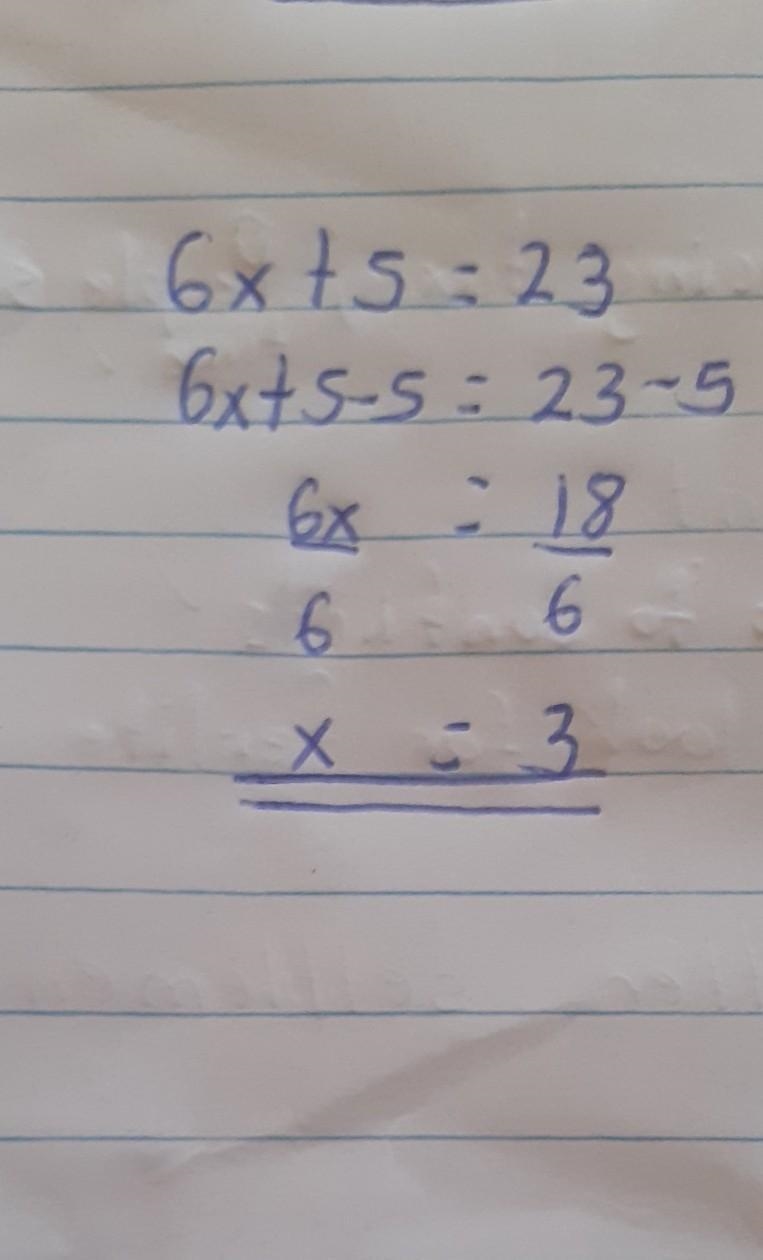 6x + 5 = 23
6x + 5 - 5 = 23 - 5
6x = 18
6 6
x = 3